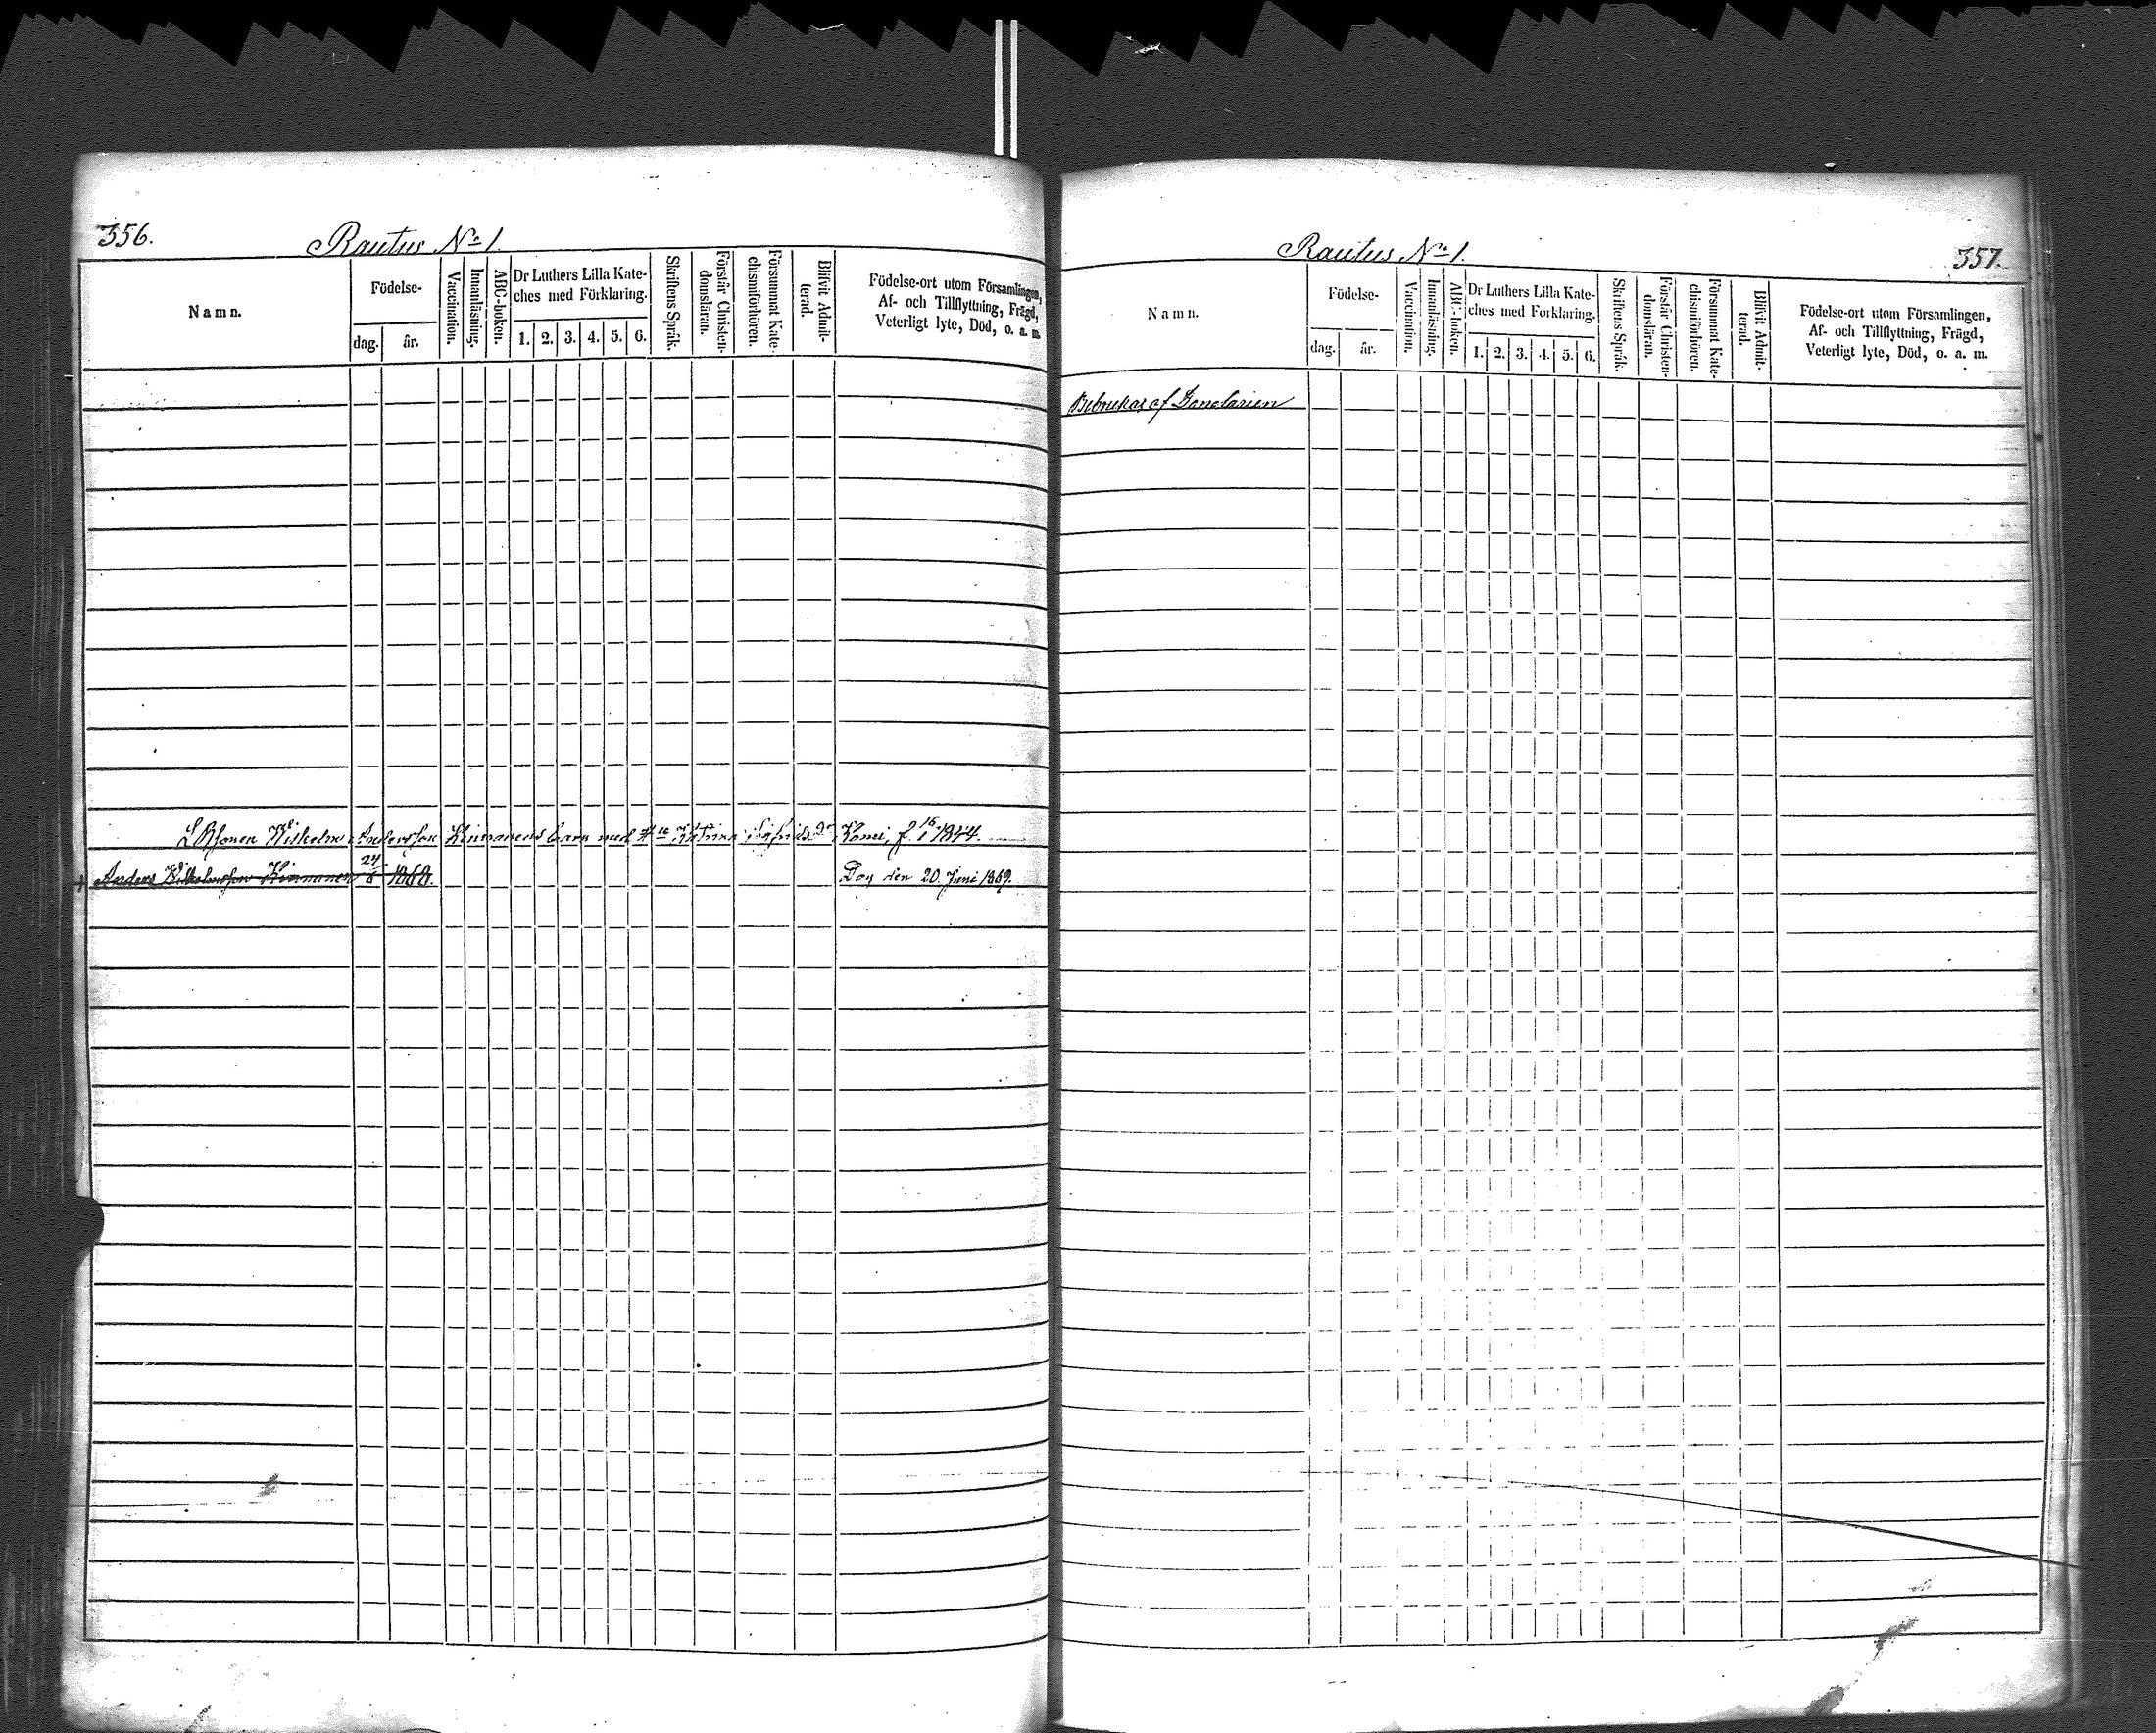 356.
Rautus No 1.
Namn.
Födelse-
dag.
år.
Vaccination.
Innanläsning.
ABC-boken.
Dr Luthers Lilla Kate-
ches med Förklaring.
1. 2. 3. 4. 5. 6.
Skriftens Språk.
Förstår Christen-
domsläran.
Försummat Kate-
chismiförhören.
Blivit Admit-
terad.
Födelse-ort utom Församlingen,
Af- och Tillflyttning, Frägd,
Veterligt lyte, Död, o. a. m.
Wilhelm Andersson Kinnanens barn med Katrina Sigfridsdr Komi, f. 16/1 1844.
Anders Wilhelmsson Kinnanen 24/8 1868. Dog den 20 Juni 1869.
Rautus No 1.
357.
Namn.
Födelse-
dag.
år.
Vaccination.
Innanläsning.
ABC-boken.
Dr Luthers Lilla Kate-
ches med Förklaring.
1. 2. 3. 4. 5. 6.
Skriftens Språk.
Förstår Christen-
domsläran.
Försummat Kate-
chismiförhören.
Blivit Admit-
terad.
Födelse-ort utom Församlingen,
Af- och Tillflyttning, Frägd,
Veterligt lyte, Död, o. a. m.
Bebrukas af